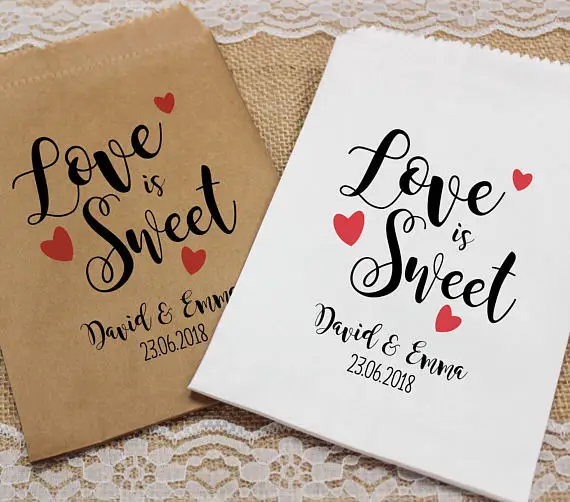 Love
is
Sweet
David & Emma
23.06.2018
Love
is
Sweet
David & Emma
23.06.2018